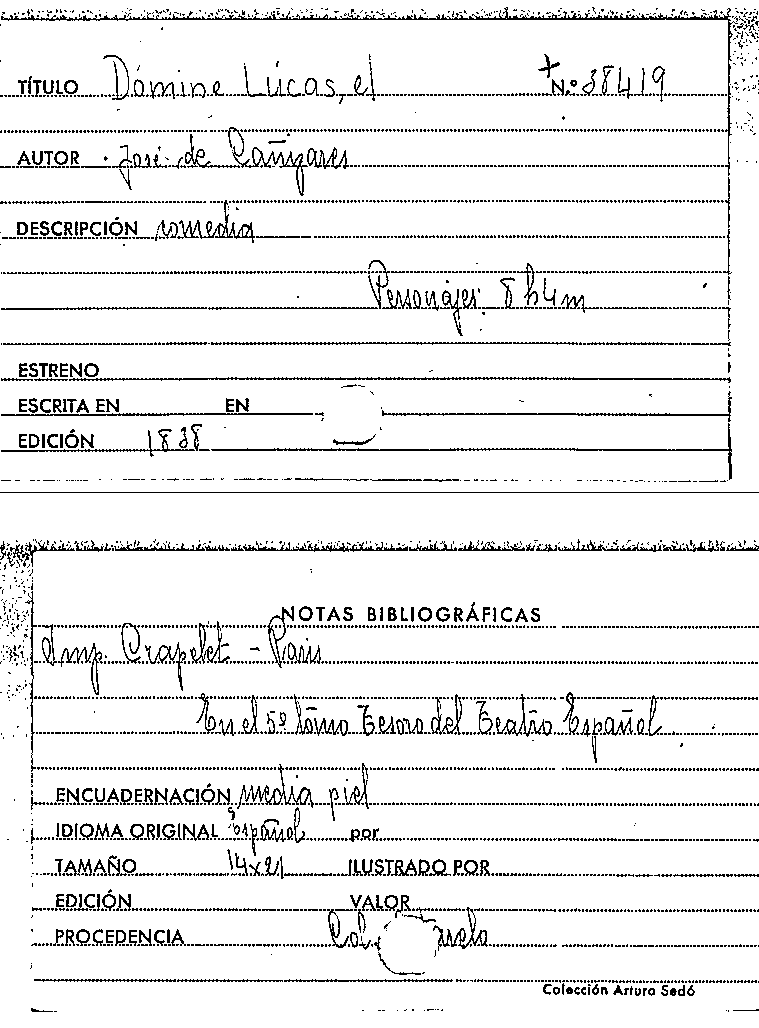 TÍTULO Dómine Lúcas, el + N.º 38419
AUTOR José de Cañizares
DESCRIPCIÓN comedia
Personajes: 8 h 4 m
ESTRENO
ESCRITA EN EN
EDICIÓN 1838
NOTAS BIBLIOGRÁFICAS
Imp. Crapelet - Paris
En el 5º tomo Tesoro del Teatro Español
ENCUADERNACIÓN media piel
IDIOMA ORIGINAL Español por
TAMAÑO 14x21 ILUSTRADO POR
EDICIÓN VALOR
PROCEDENCIA Col.
Colección Arturo Sedó